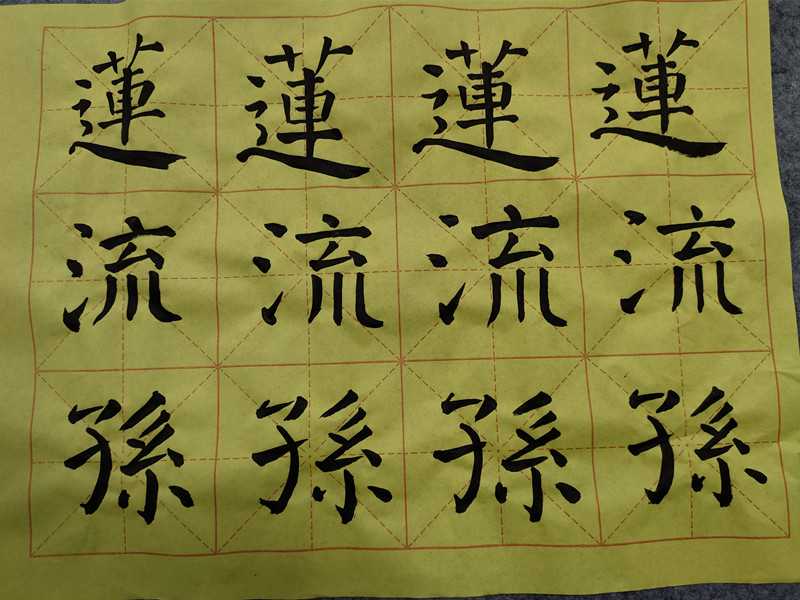 蓮蓮蓮蓮
流流流流
孫孫孫孫